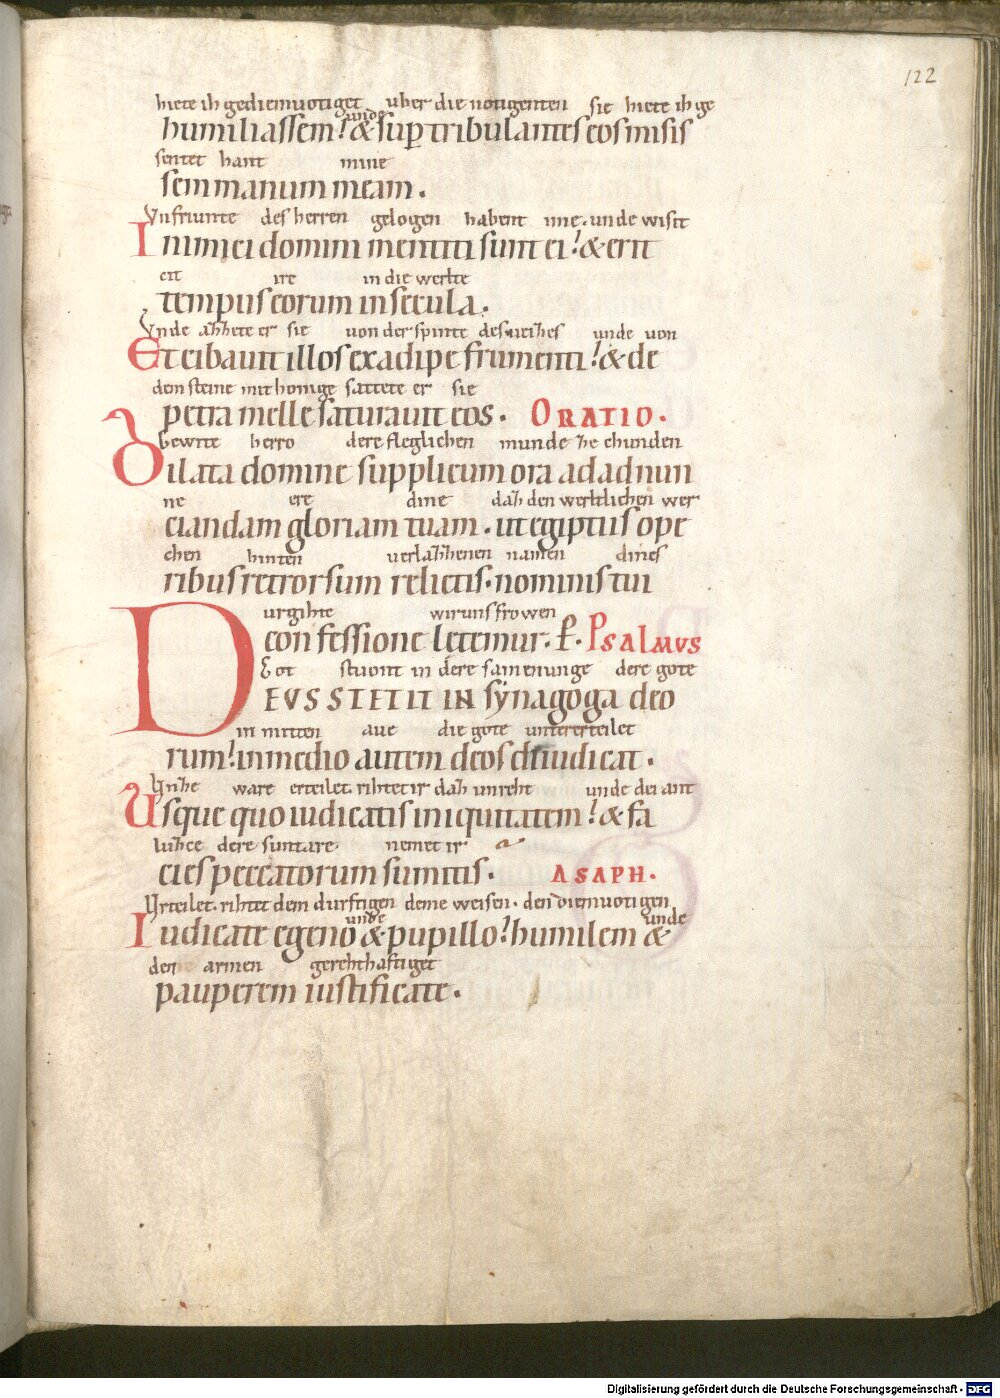 122
hiete ih gediemuotiget uber die notigenten sie hiete ih ge
unde
humiliassem: & sup tribulantes eos misis
sentet hant mine
sem manum meam.
Vnfriunte des herren gelogen habent ime. unde wisit
Inimici domini mentiti sunt ei: & erit
cit ire in die werlte
tempus eorum in secula.
Vnde azzete er sie von der spinte des weizes unde von
Et cibauit illos ex adipe frumenti: & de
dem steine mit honige sattete er sie
petra melle saturauit eos. ORATIO.
herro dere fleglichen munde ze chunden
Dilata domine supplicum ora ad adnun
ne ere dine daz den werltlichen wer
ciandam gloriam tuam. ut egiptiis ope
chen hinten verlazzenen namen dines
ribus retrorsum relictis. nominis tui
urgihte wir uns frowen
confessione letemur. P. PSALMVS
Got stuont in dere samenunge dere gote
DEVS STETIT IN synagoga deo
in mitten aue die gote untererteilet
rum: in medio autem deos diiudicat.
Vnze ware erteilet. rihtet ir daz unreht unde dei ant
Usque quo iudicatis iniquitatem: & fa
luzce dere suntare nemet ir
cies peccatorum sumitis. ASAPH.
Vrteilet. rihtet dem durftigen deme weisen. den diemuotigen
unde unde
Iudicate egeno & pupillo: humilem &
den armen gerehthaftiget
pauperem iustificate.
Digitalisierung gefördert durch die Deutsche Forschungsgemeinschaft - DFG